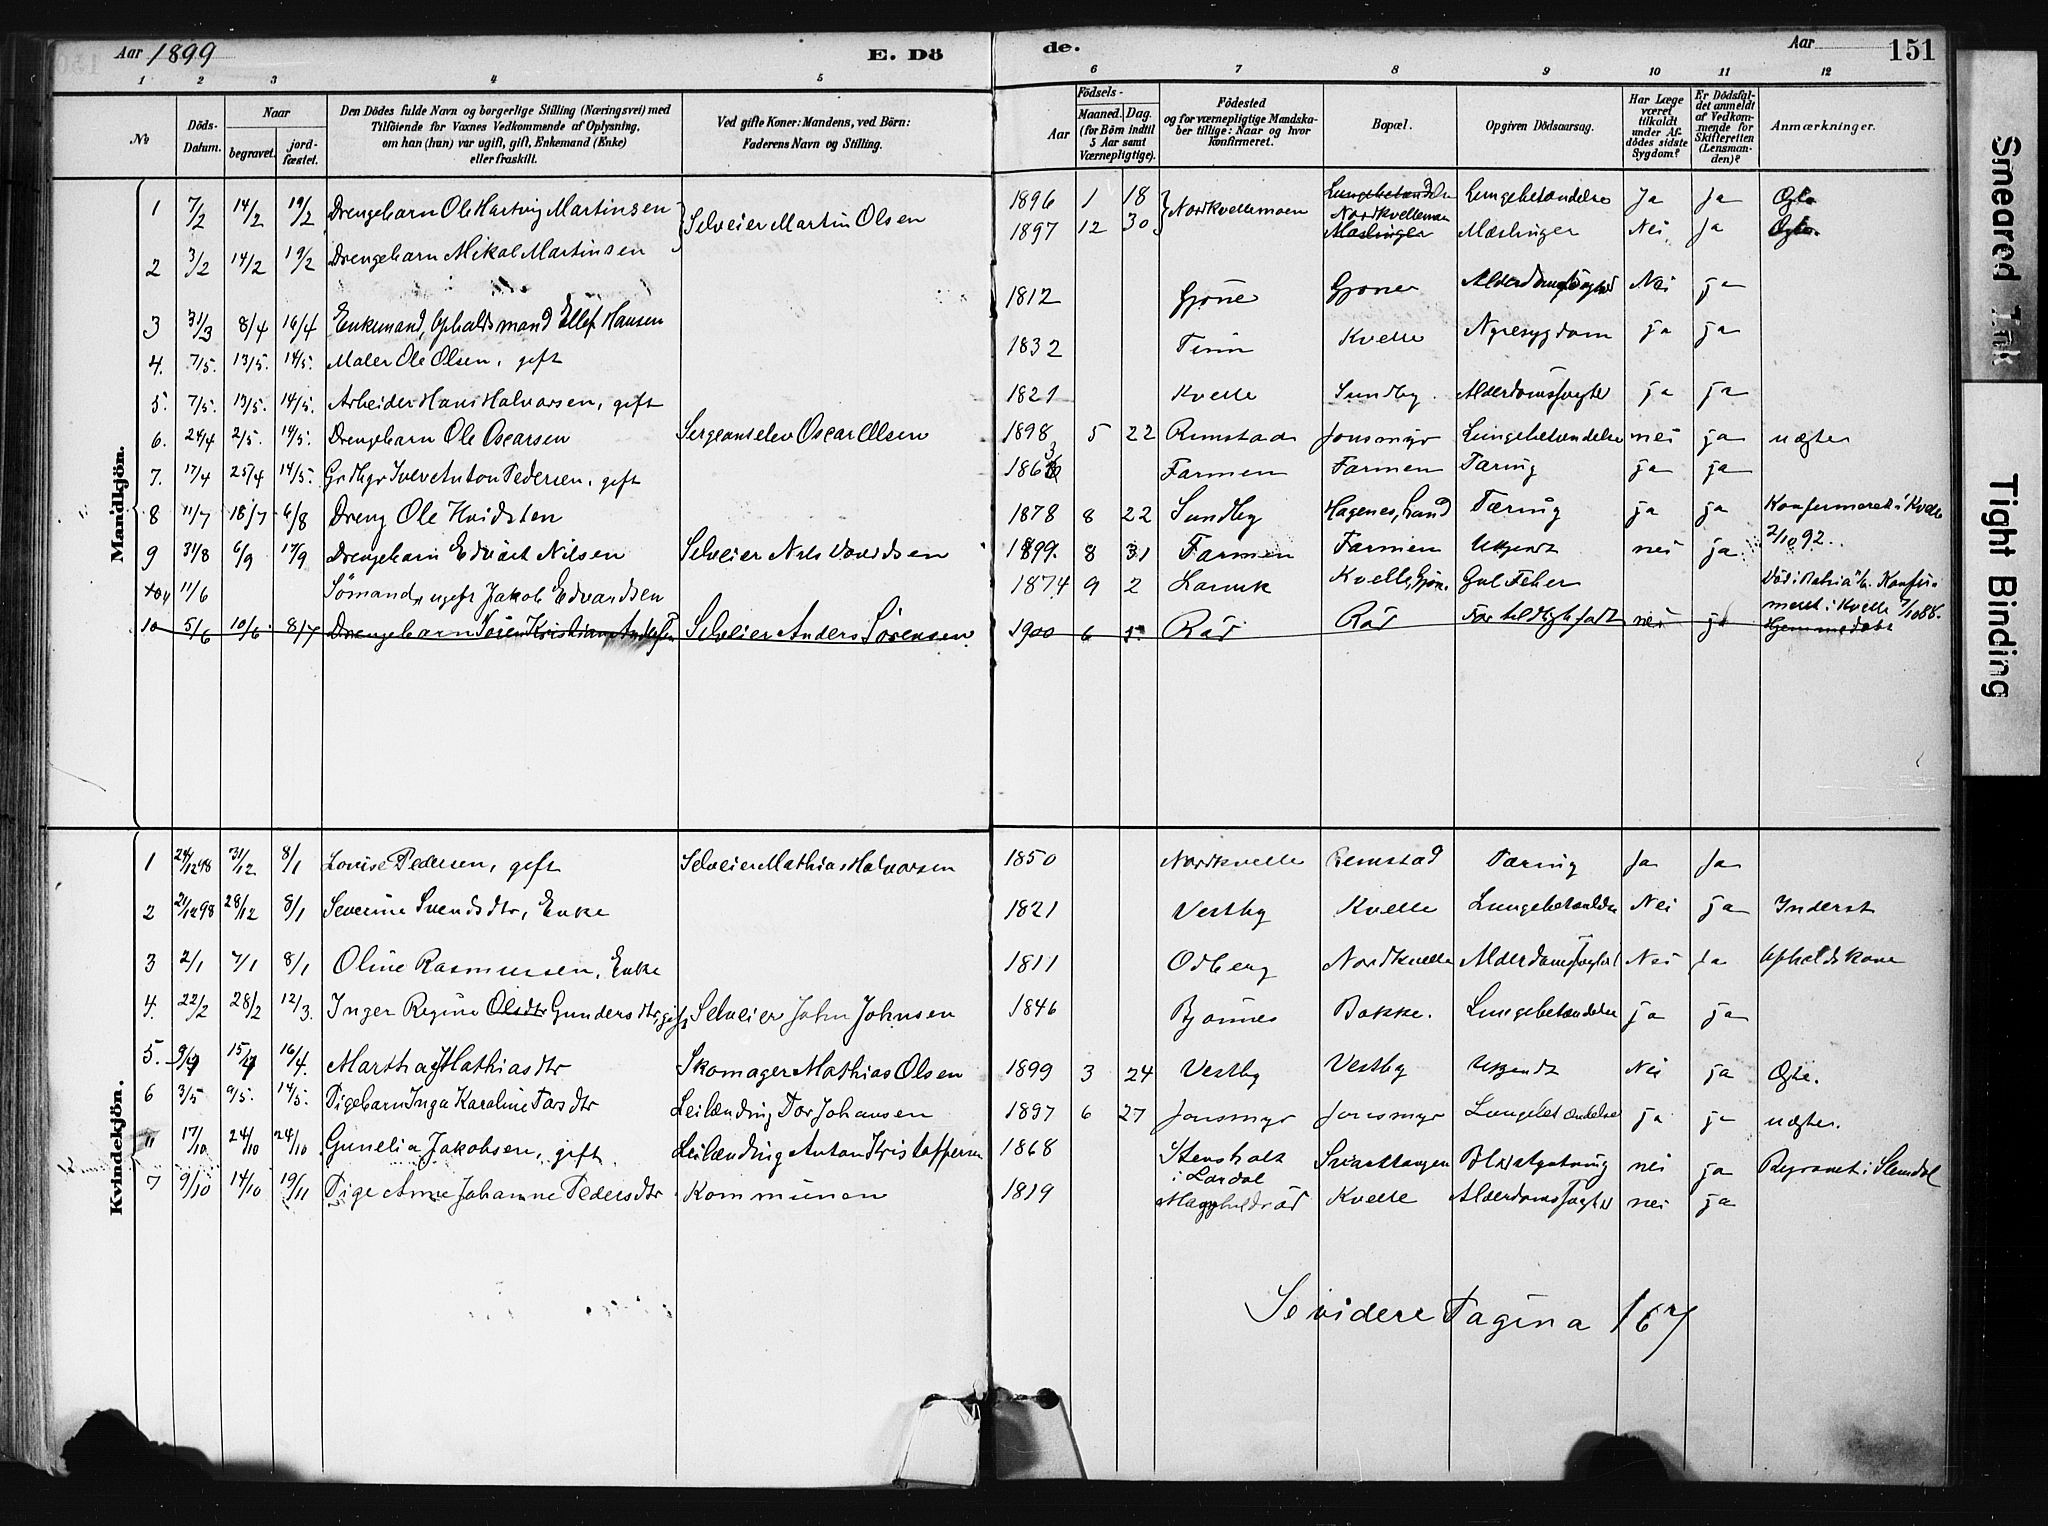 Aar 1899 E. Dö de. Aar 151
1 2 3 4 5 6 7 8 9 10 11 12
No
Döds-Datum.
Naar
begravet.
jordfæstet.
Den Dödes fulde Navn og borgerlige Stilling (Næringsvei) med Tilföiende for Voxnes Vedkommende af Oplysning, om han (hun) var ugift, gift, Enkemand (Enke) eller fraskilt.
Ved gifte Koner: Mandens, ved Börn: Faderens Navn og Stilling.
Födsels-
Aar
Maaned. Dag.
(for Börn indtil 5 Aar samt Værnepligtige).
Födested og for værnepligtige Mandskaber tillige: Naar og hvor konfirmeret.
Bopæl.
Opgiven Dödsaarsag.
Har Læge været tilkaldt under Afdödes sidste Sygdom?
Er Dödsfaldet anmeldt af Vedkommende for Skifteretten (Lensmanden)?
Anmærkninger.
Mandkjön.
1 7/2 14/2 19/2 Drengebarn Ole Hartvig Martinsen Selveier Martin Olsen 1896 1 18 Nordkvellemoen Lungebetændelse Lungebetændelse Ja Ja Ægte
2 3/2 14/2 19/2 Drengebarn Mikal Martinsen 1897 12 30 Nordkvellemoen Mæslinger Mæslinger Nei Ja Ægte.
3 31/3 8/4 16/4 Enkemand, Opholdsmand Ellef Hansen 1812 Gjone Gjone Alderdomssvaghed Nei ja
4. 7/5. 13/5. 14/5. Maler Ole Olsen, gift 1832 Tinn Kvelle Nyresygdom ja ja
5. 7/5. 13/5. 14/5. Arbeider Hans Halvorsen, gift 1821 Kvelle Sundby. Alderdomssvaghed ja ja
6. 24/4 2/5. 14/5. Drengebarn Ole Oscarsen Sergeantelev Oscar Olsen 1898 5 22 Rimstad Jonsmyr Lungebetændelse nei ja uægte
7. 17/4 25/4 14/5. Iver Anton Pedersen, gift 186 Farmen Farmen Tæring ja ja
8 11/7 18/7 6/8 Dreng Ole Hvidsten 1878 8 22 Sundby Hagenes, Tæring ja ja Konfirmeret i Kvelle 2/10 92.
9 31/8 6/9 17/9 Drengebarn Edvart Nilsen Selveier Nils Davidsen 1899. 8 31 Farmen Farmen Ukjendt nei ja
11/6 Sömand, ugift Jakob Edvardsen 1874 9 2 Larvik Kvelle, Gul Feber Död i Konfirmeret i Kvelle 7/10 88.
10 5/6 10/6 8/7 Drengebarn Sören Kristian Andersen Selveier Anders Sörensen 1900 6 5 Råd Råd For tidlig födt nei ja Hjemmedöbt
Kvindekjön.
1 24/12 98 31/12 8/1 Lovise Pedersen, gift Selveier Mathias Halvorsen 1850 Nordkvelle Remstad Tæring Ja Ja
2 21/12 98 28/12 8/1 Severine Svendsdtr, Enke 1821 Vestby Kvelle Lungebetændelse Nei ja Inderst
3 2/1 7/1 8/1 Oline Rasmussen, Enke 1811 Odberg Nordkvelle Alderdomssvaghed Nei Ja Opholdskone
4. 22/2 28/2 12/3. Inger Regine Olsdtr Gundersdtr, gift Selveier John Johnsen 1846 Bjönnes Bakke. Lungebetændelse ja ja
5. 9/4 15/4 16/4. Martha Mathiasdtr Skomager Mathias Olsen 1899 3 24 Vestby Vestby Ukjendt Nei ja Ægte.
6 3/5 9/5. 14/5. Pigebarn Inga Karoline Torsdtr Leilænding Tor Johansen 1897 6 27 Jonsmyr Jonsmyr Lungebetændelse ja ja uægte.
" 17/10 24/10 24/10 Gunelia Jakobsen, gift Leilænding Anton Kristoffersen 1868 Stensholt i Lardal Svarttangen Blodstyrtning nei ja Begravet i Slemdal
7 9/10 14/10 19/11 Pige Anne Johanne Pedersdtr Kommunen 1819 Kvelle Alderdomssvaghed nei ja
Se videre Pagina 167
Smeared Ink
Tight Binding